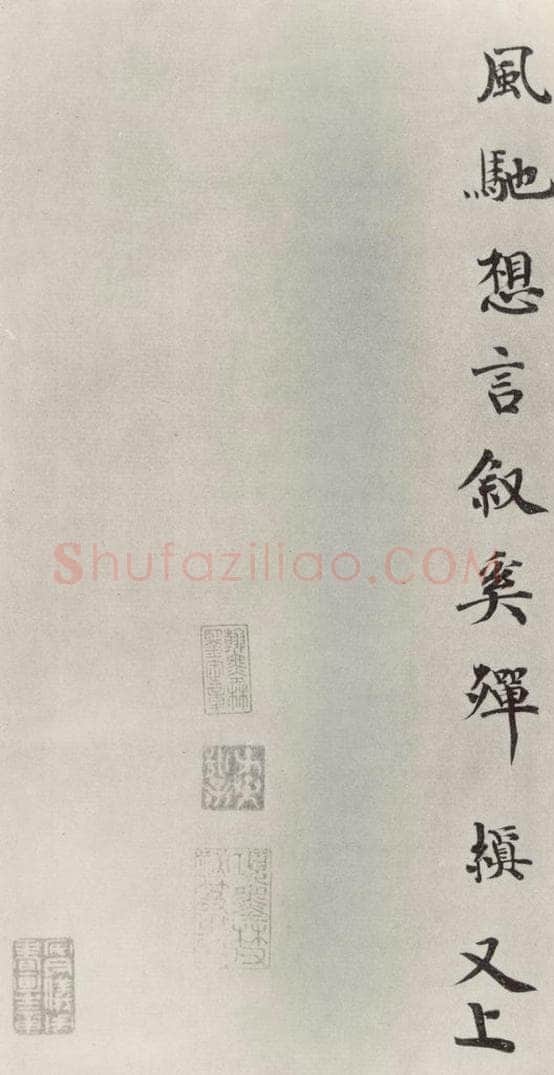 風馳想言叙奚殫 又上
Shufaziliao.COM